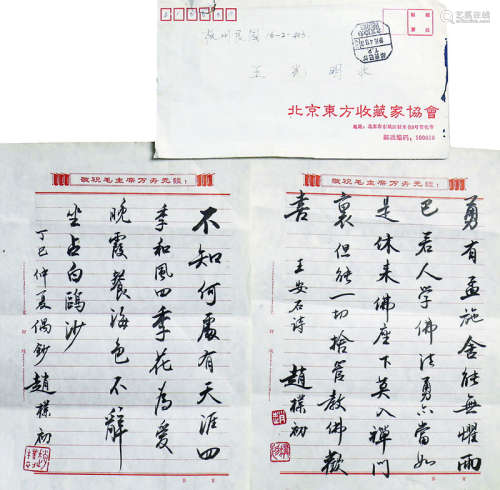 北京東方收藏家協會
邮政编码：100010
敬祝毛主席万寿无疆！
勇有孟施舍能無懼而
已若人学佛法勇亦當如
是休来佛座下莫入禅門
裏但能一切捨管教佛歡
喜
王安石诗
趙樸初
敬祝毛主席万寿无疆！
不知何處有天涯四
季和風四季花為爱
晚霞餐海色不辭
坐占白鷗沙
丁巳仲夏偶鈔
趙樸初